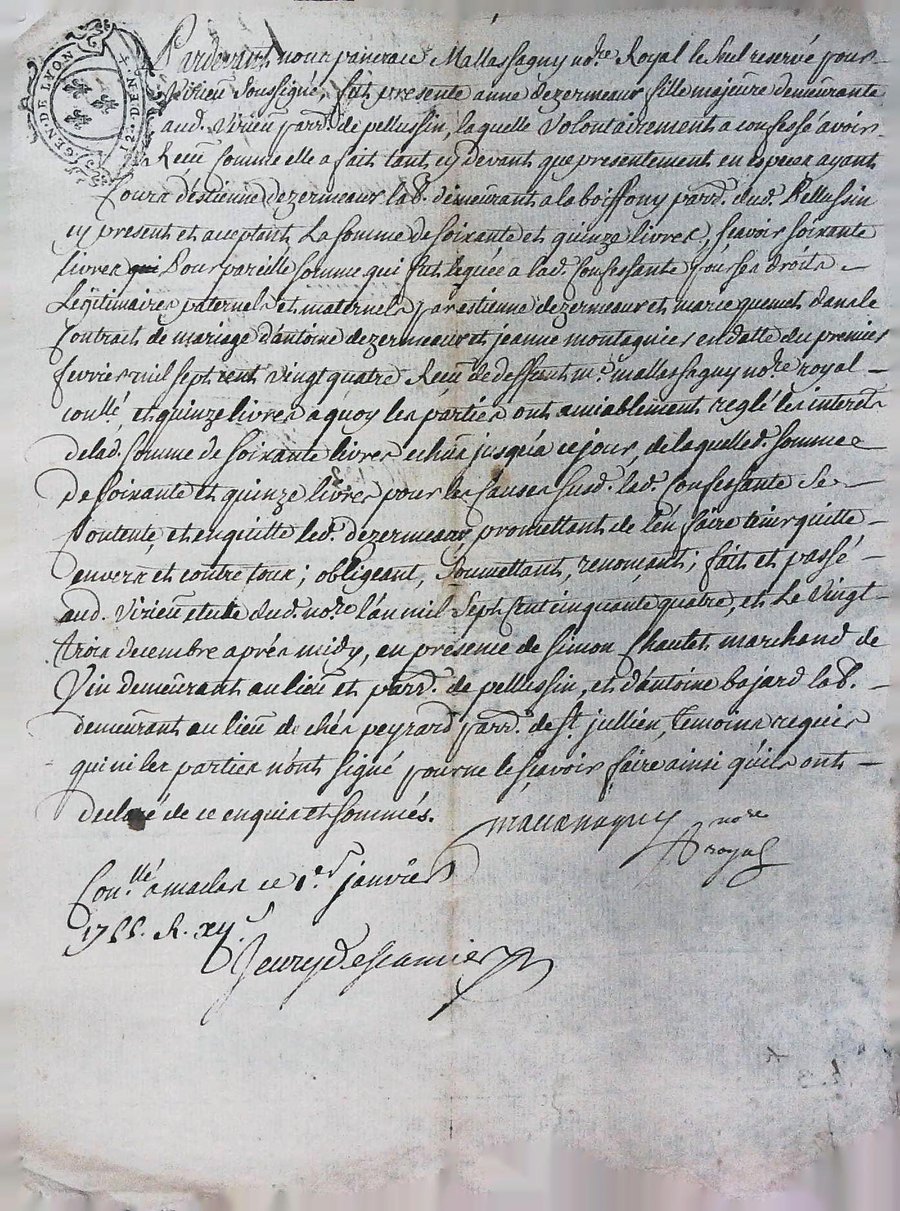 GEN. DE LYON
12. DEN.
Pardevant nous Mallassagny no.re Royal le seul reservé pour
Virieu soussigné, fut presente anne dezermeaux fille majeure demeurante
aud. Virieu parr.e de pellussin, laquelle volontairement a confessé avoir
Receu comme elle a fait tant cy devant que presentement en especes ayant
Cours d'éstienne dezermeaux lab.r demeurant a la boissony parr.e dud. Pellussin
cy present et acceptant La somme de soixante et quinze livres, sçavoir soixante
livres Pour pareille somme qui fut leguée a lad. Confessante pour ses droits
Legitimaires paternels et maternels par estienne dezermeaux et marie quemet dans le
Contract de mariage d'antoine dezermeaux et jeanne montagnier en datte du premier
fevrier mil sept cent vingt quatre Receu de deffunt m.e mallassagny no.re royal
con.llé, et quinze livres a quoy les parties ont amiablement reglé les interets
de lad. somme de soixante livres echus jusqu'a ce jour, de laquelle d. somme
de soixante et quinze livres pour les Causes susd. lad. Confessante se
Contente, et en quitte led. dezermeaux promettant de l'en faire tenir quitte
envers et contre tous; obligeant, soumettant, renonçant; fait et passé
aud. Virieu etude dud. no.re l'an mil Sept Cent cinquante quatre, et Le Vingt
trois decembre aprés midy, en presence de Simon Chautet marchand de
Vin demeurant au lieu et parr.e de pellussin, et d'antoine bajard lab.r
demeurant au lieu de chés peyrard parr.e de st. jullien, temoins requis
qui ni les parties n'ont signé pour ne le sçavoir faire ainsi qu'ils ont
declaré de ce enquis et sommés.
mallassagny no.re
royal
Con.llé a maclas ce 1.er janvier
1755. R. xij s